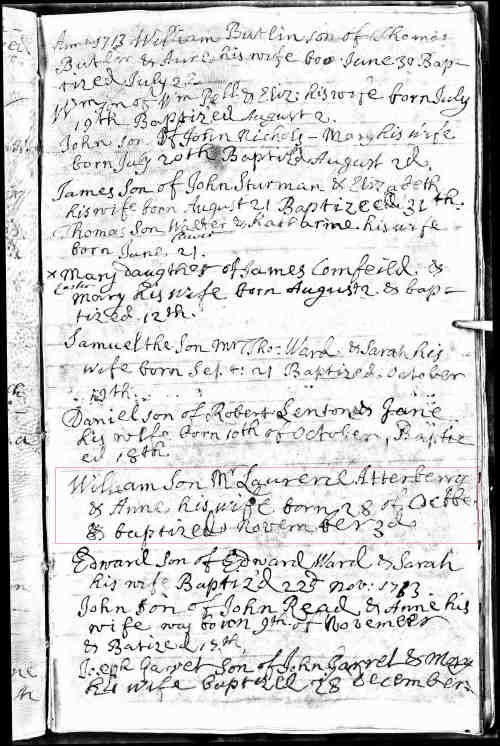 Ann: 1713 William Butlin son of Thomas
Butler & Anne his wife bor June 30 Bap-
tized July 2
Wm son of Wm Pell & Eliz: his wife born July
19th Baptized August 2.
John son of John Nichols - Mary his wife
born July 20th Baptized August 2d.
James Son of John Sturman & Elizabeth
his wife born August 21 Baptized 31th:
Thomas Son Walter & Katharine his wife
born June. 21.
x Mary daughter of James Cornfeild. &
Mary his wife born August 2. & bap-
tized. 12th.
Samuel the Son Mr Tho: Ward & Sarah his
wife born Sep. t: 21 Baptized. October
Daniel son of Robert Lenton & Jane
his wife born 10th of October, Baptiz
ed 18th.
William Son Mr Laurence Atterberry
& Anne his wife born 28 of Octobe
& baptized November 3d
Edward Son of Edward Ward & Sarah
his wife Baptiz'd 22d Nov: 1713.
John son of John Read & Anne his
wife was born 9th of November
& Batized 15th.
Joseph Garret Son of John Garret & Mary
his wife baptized 28 December.